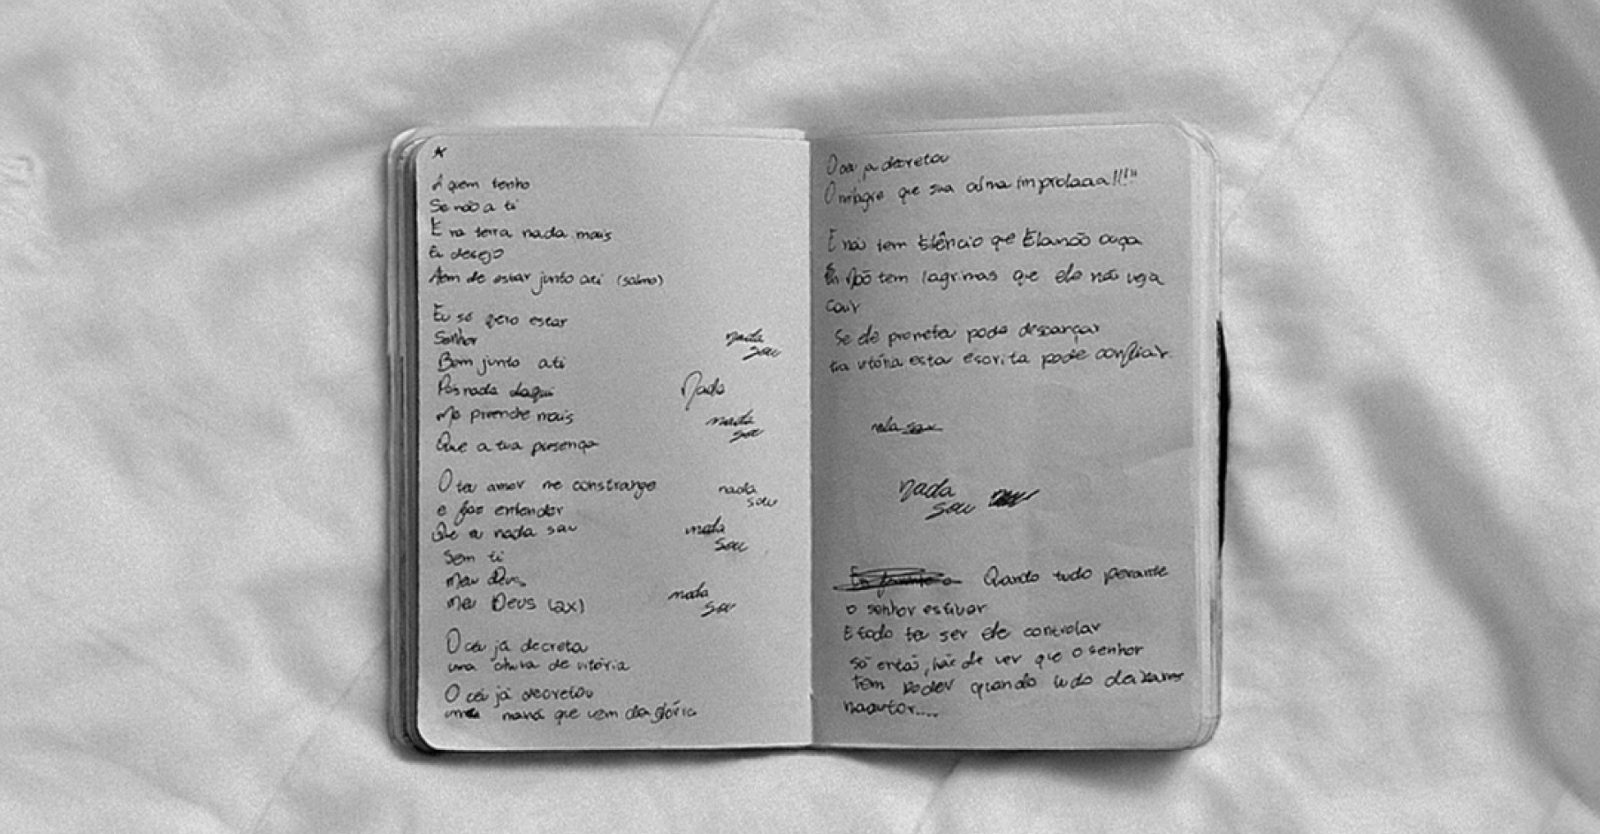 A quem tenho
Se não a ti
E na terra nada mais
Eu desejo
Além de estar junto a ti (salmo)
Eu só qero estar
Senhor
Bem junto a ti
Pois nada daqui
Me preenche mais
Que a tua presença
O teu amor me constrange
e faz entender
Que eu nada sou
Sem ti
meu Deus
meu Deus (2x)
O céu já decreta
uma chuva de vitória
O céu já decretou
maná que vem da glória
nada
sou
Nada
nada
sou
nada
sou
nada
sou
nada
sou
O céu já decretou
O milagre que sua alma implora
E não tem silêncio que Ela não ouça
não tem lagrimas que ele não veja
cair
Se ele prometeu pode descançar
tua vitória esta escrita pode confiar.
nada sou
Nada
sou
Quando tudo perante
o senhor estiver
E todo teu ser ele controlar
só então, hás de ver que o senhor
tem poder quando tudo deixares
no autor....